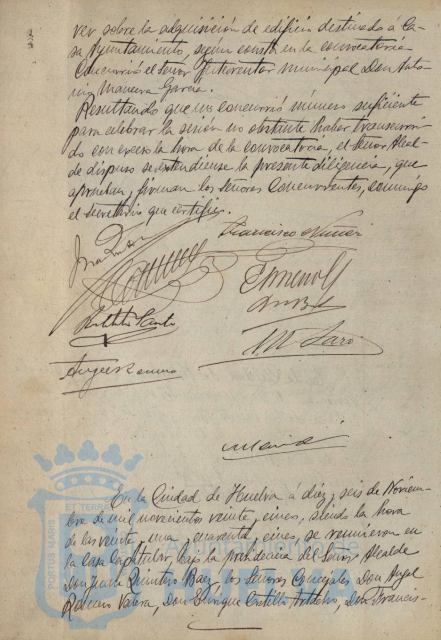 ver sobre la adquisición de edificio destinado á Ca-
sa Ayuntamiento, segun consta en la convocatoria
Concurrió el señor Interventor municipal Don Anto-
nio Manuera García.
Resultando que no concurrió número suficiente
para celebrar la sesión no obstante haber transcurri-
do con exceso la hora de la convocatoria, el señor Alcal-
de dispuso se extendiese la presente diligencia, que
aprueban y firman los señores Concurrentes, conmigo
el secretario que certifico.
Francisco
En la Ciudad de Huelva á diez y seis de Noviem-
bre de mil novecientos veinte y cinco, siendo la hora
de las veinte y una y cuarenta y cinco, se reunieron en
la Casa Capitular, bajo la presidencia del Señor Alcalde
Don Juan Quintero Baez, los Señores Concejales Don Angel
Romero Valera, Don Enrique Castilla Don Francis-
PORTUS MARIS
ET TERRAE